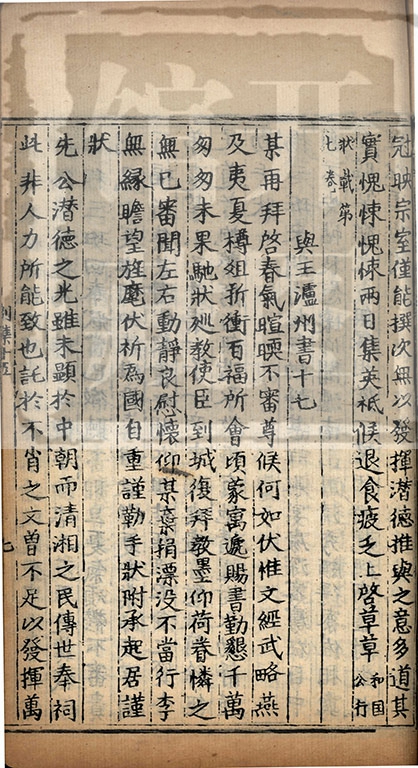 冠映宗室僅能撰次無以發揮潛德推與之意多道其
實愧悚愧悚兩日集英祗候退食疲乏上啓草草和國公行
狀載第七卷
與王瀘州書十七
某再拜啓春氣暄暖不審尊候何如伏惟文經武略燕
及夷夏樽俎折衝百福所會頃蒙寓遞賜書勤懇千萬
匆匆未果馳狀廵教使臣到城復拜教墨仰荷眷憐之
無已審聞左右動靜良慰懷仰某棄捐漂沒不當行李
無縁瞻望旌麾伏祈為國自重謹勒手狀附承起居謹
狀
先公潛德之光雖未顯於中朝而清湘之民傳世奉祠
此非人力所能致也託於不肖之文曽不足以發揮萬